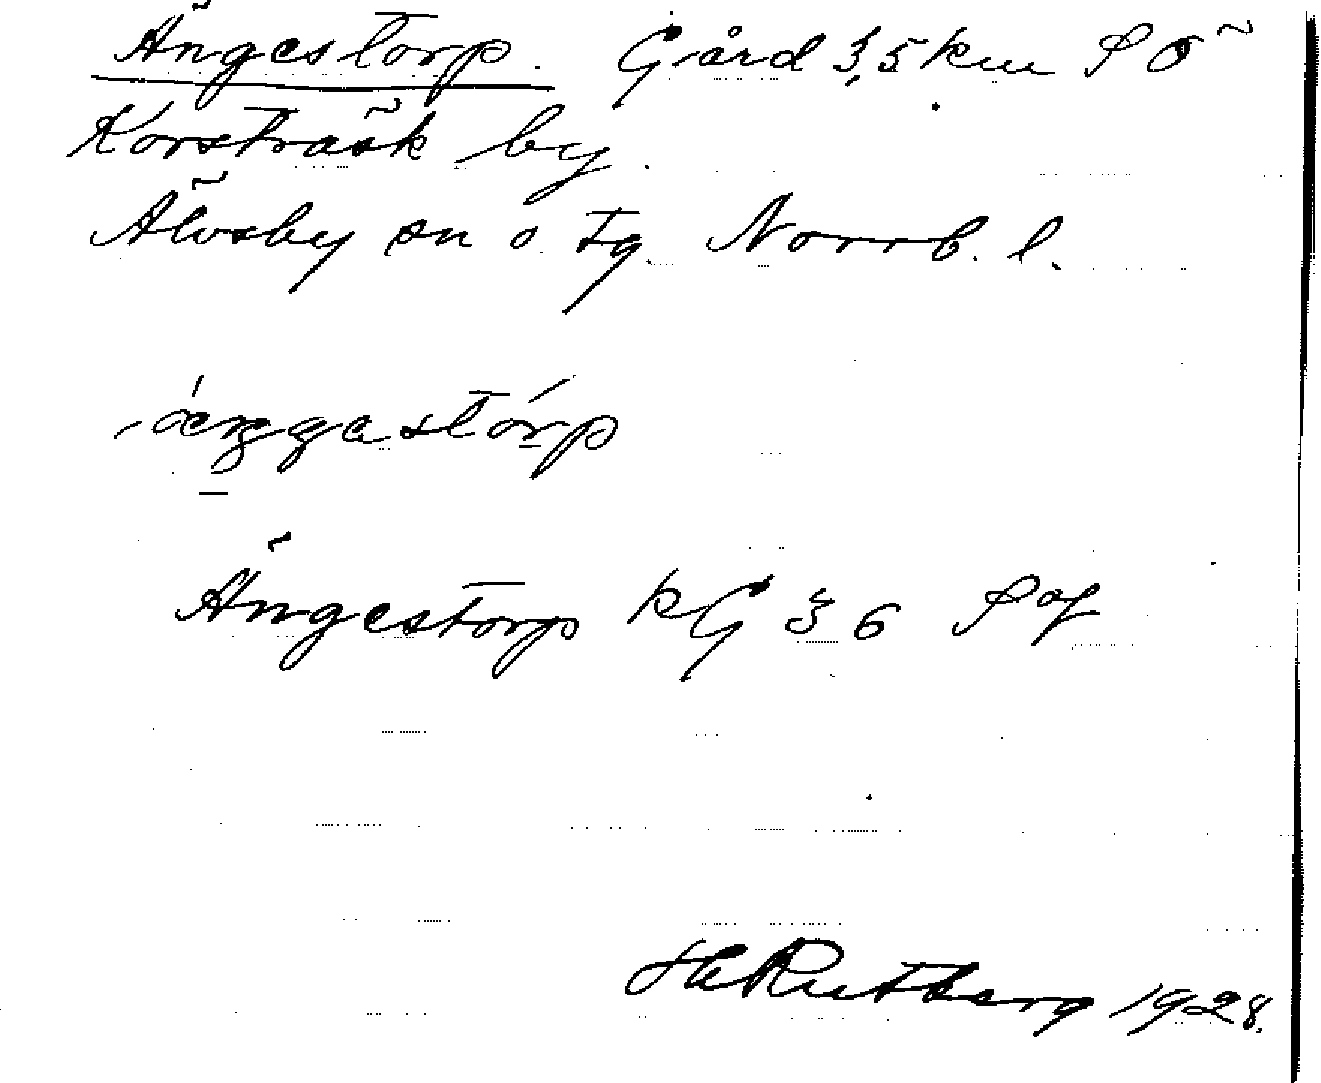 Ängestorp. Gård 3,5 km S Ö
Korsträsk by.
Älvsby sn o. tg. Norrb. l.
Ängestorp kG 36 Sof
H Rutberg 1928.